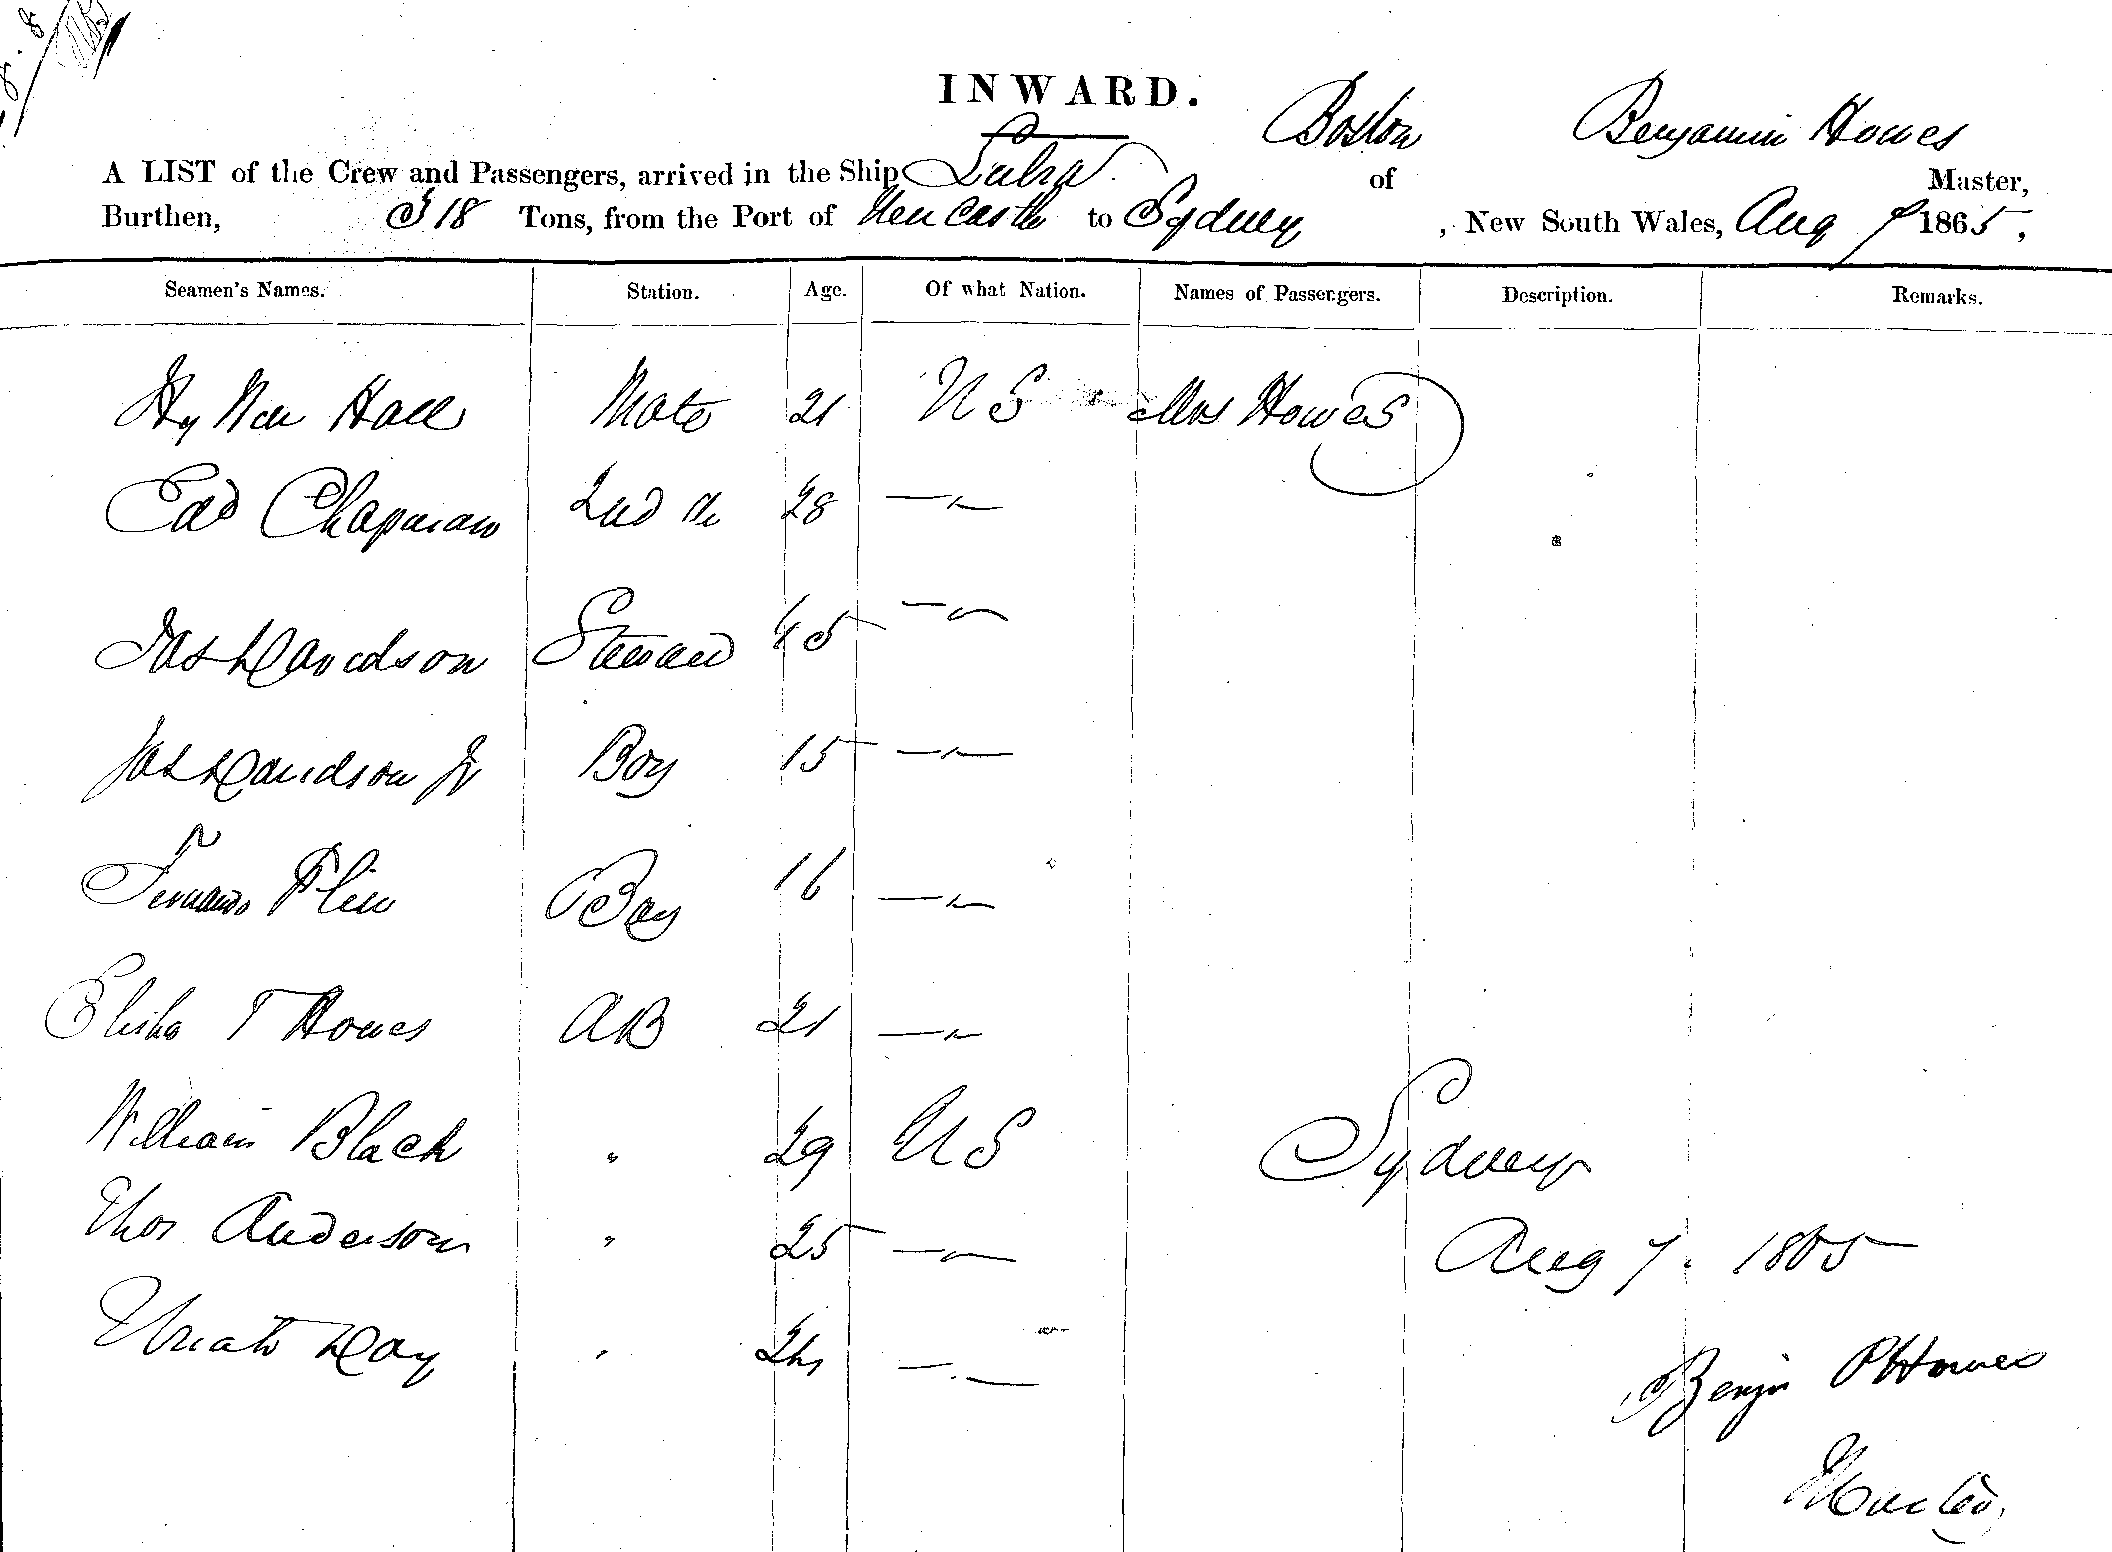 INWARD.
Boston Benjamin Howes
A LIST of the Crew and Passengers, arrived in the Ship Lubra of Master,
Burthen, 318 Tons, from the Port of Newcastle to Sydney, New South Wales, Aug 7 1865,
Seamen's Names. Station. Age. Of what Nation. Names of Passengers. Description. Remarks.
Hy Hall Mate 21 US Mrs Howes
Ed Chapman 2nd 28 —"—
Jas Davidson Steward 45 —"—
Jas Davidson Jr Boy 15 —"—
Fernando Boy 16 —"—
Elisha T Howes AB 21 —"—
William Black " 29 US Sydney
Thos Anderson " 25 —"—
Aug 7. 1865
Uriah Day " —"—
Benjn P Howes
Master